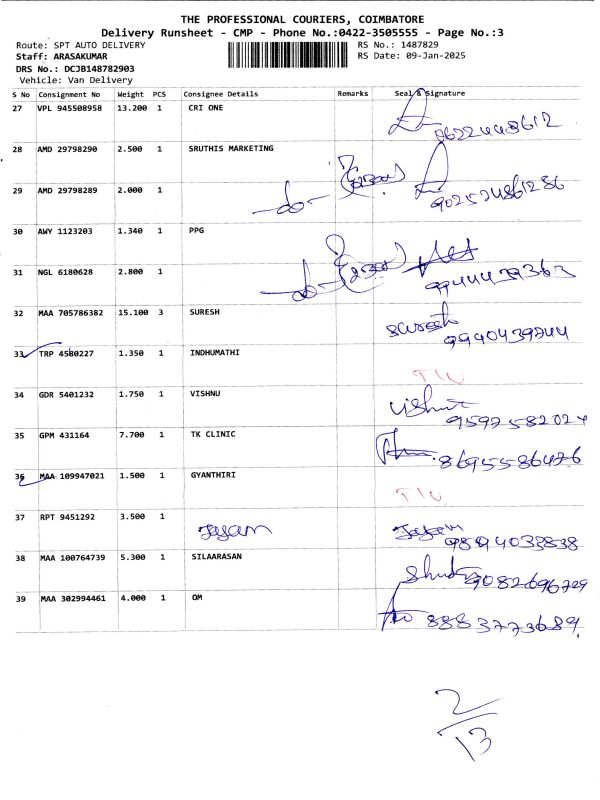 THE PROFESSIONAL COURIERS, COIMBATORE
Delivery Runsheet - CMP - Phone No.:0422-3505555 - Page No.:3
Route: SPT AUTO DELIVERY RS No.: 1487829
Staff: ARASAKUMAR RS Date: 09-Jan-2025
DRS No.: DCJB148782903
Vehicle: Van Delivery
S No Consignment No Weight PCS Consignee Details Remarks Seal & Signature
27 VPL 945508958 13.200 1 CRI ONE
28 AMD 29798290 2.500 1 SRUTHIS MARKETING
29 AMD 29798289 2.000 1 -do- 902524861286
30 AWY 1123203 1.340 1 PPG
31 NGL 6180628 2.800 1 -do-
32 MAA 705786382 15.100 3 SURESH Suresh
9940439244
33 TRP 4580227 1.350 1 INDHUMATHI
34 GDR 5401232 1.750 1 VISHNU Vishnu
9597582024
35 GPM 431164 7.700 1 TK CLINIC 8695586476
36 MAA 109947021 1.500 1 GYANTHIRI
37 RPT 9451292 3.500 1 Jayam Jayam
38 MAA 100764739 5.300 1 SILAARASAN 9082696729
39 MAA 302994461 4.000 1 OM 8883773689
2/13